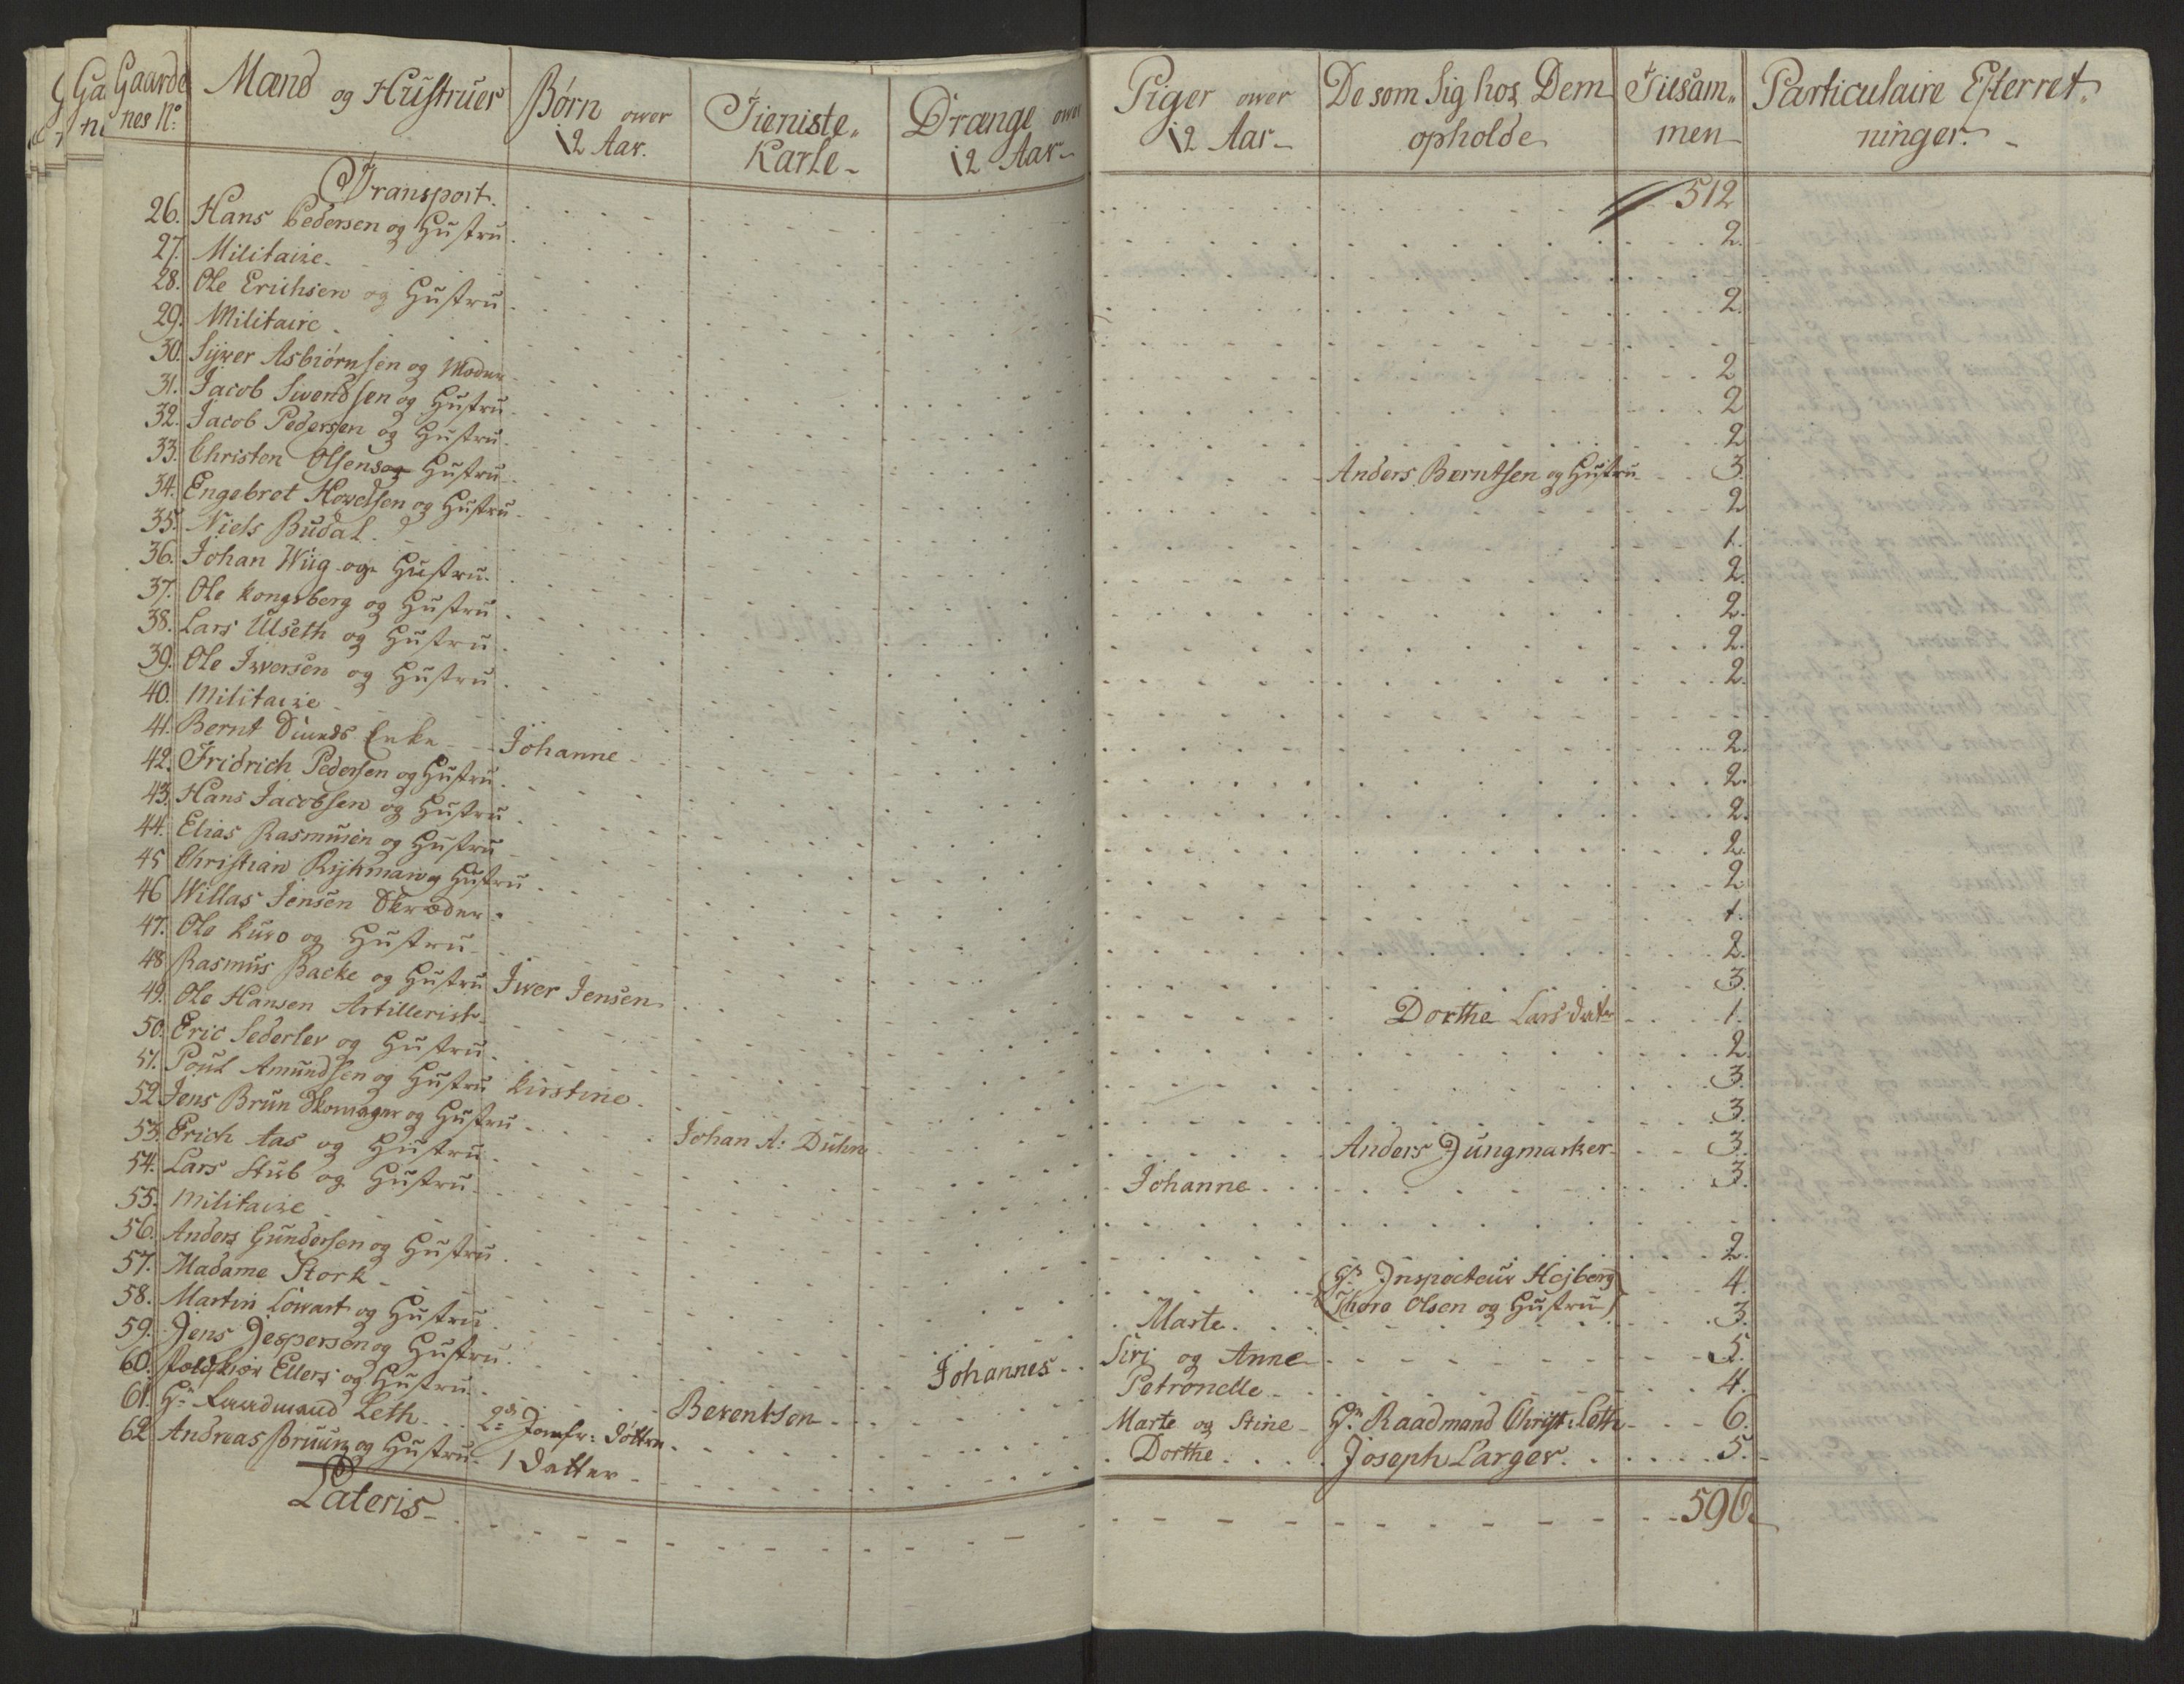 Gaarde nes No. | Mænd og Hustruer | Børn over 12 Aar. | Tieniste Karle | Drænge over 12 Aar | Piger over 12 Aar | De som Sig hos Dem opholde | Tilsammen | Particulaire Efterretninger.
Transport. 512
26. Hans Pedersen og Hustru 2.
27. Militaire
28. Ole Erichsen og Hustru 2.
29. Militaire
30. Sijver Asbiørnsen og Moder 2
31. Jacob Swendsen og Hustru 2
32. Jacob Pedersen og Hustru 2
33. Christen Olsens Hustru Anders Berntsen og Hustru 3.
34. Engebret Howelsen og Hustru 2
35. Niels Budal 1.
36. Johan Wiig og Hustru 2.
37. Ole Kongsberg og Hustru 2.
38. Lars Ulseth og Hustru 2.
39. Ole Iwersen og Hustru 2.
40. Militaire
41. Bernt Enke Johanne 2.
42. Fridrich Pedersen og Hustru 2.
43. Hans Jacobsen og Hustru 2.
44. Elias Rasmusen og Hustru 2.
45 Christian og Hustru 2
46 Willas Jensen Skræder 1.
47. Ole Kuro og Hustru 2.
48 Rasmus Backe og Hustru Iver Jensen 3.
49. Ole Hansen Artillerist Dorthe Larsdater 1.
50. Eric Sederlev og Hustru 2.
51. Poul Amundsen og Hustru Kirstine 3.
52 Jens Brun Skomager og Hustru Johan A: Duhm 3.
53. Erich Aas og Hustru Anders Jungmarker 3.
54. Lars Stub og Hustru Johanne 3.
55. Militaire
56. Anders Gundersen og Hustru 2.
57. Madame Stork Hr. Inspecteur Hejberg Thore Olsen og Hustru 4.
58. Martin og Hustru Marte 3.
59. Jens Jespersen og Hustru Johannes Siri og Anne 5.
60. Ellers og Hustru Berentsen Petronelle 4.
61. Hr. Raadmand Leth 2de Jomfr: Døttre Marte og Stine Hr. Raadmand Christ: Leth 6.
62 Andreas Bruun og Hustru 1 Datter Dorthe Joseph Larger 5.
Lateris 596.